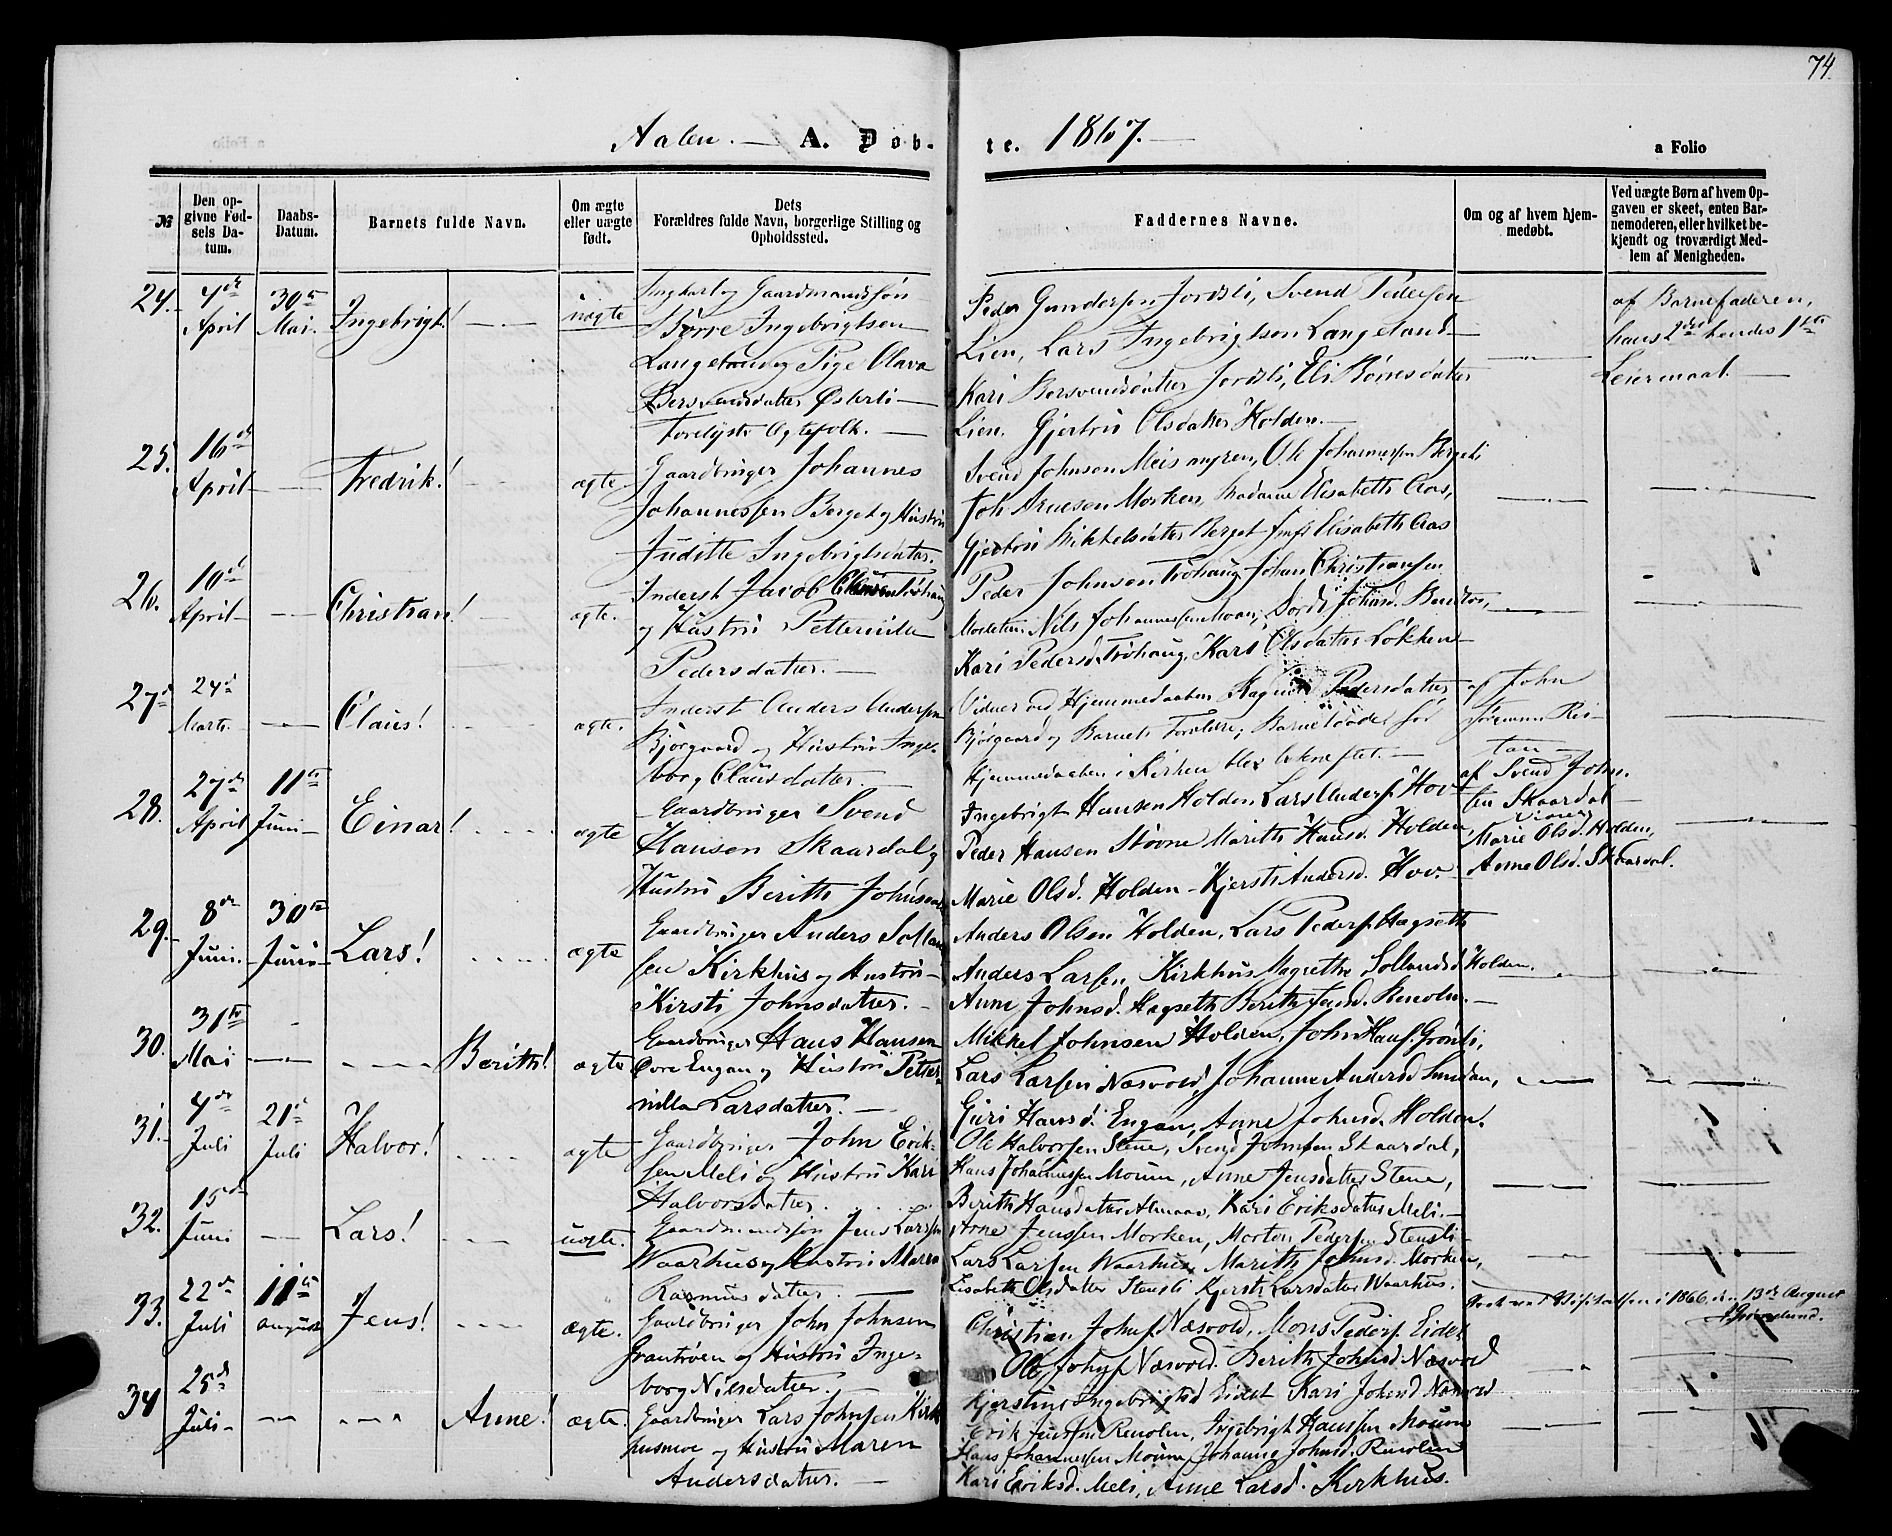 74.
Aalen. — A. Døb- te. 1867. —
a Folio
№
Den op-
givne Fød-
sels Da-
tum.
Daabs-
Datum.
Barnets fulde Navn.
Om ægte
eller uægte
født.
Dets
Forældres fulde Navn, borgerlige Stilling og
Opholdssted.
Faddernes Navne.
Om og af hvem hjem-
medøbt.
Ved uægte Børn af hvem Op-
gaven er skeet, enten Bar-
nemoderen, eller hvilket be-
kjendt og troværdigt Med-
lem af Menigheden.
24. 4de April 30te Mai. Ingebrigt! uægte
Ungkarl og Gaardmandssøn
Ingebrigtsen
Langeland og Pige Olava
Bersvendsdatter Østerli —
Trolovede Ægtefolk. —
Peder Gundersen Jordsli, Svend Pedersen
Lien, Lars Ingebrigtsen Langeland
Kari Bersvendsdatter Jordsli, Eli
Lien. Gjertru Olsdatter Holden. —
af Barnefaderen,
hans 2det hendes 1ste
Leiermaal. —
25. 16de April Fredrik! ægte.
Gaardbruger Johannes
Johannessen Berget og Hustru
Juditte Ingebrigtsdatter.
Svend Johnsen Ole Johannessen Bergeli
Joh. Arnesen Morken, Madame Elisabeth Aas,
Gjertru Mikkelsdatter Berget Jmf. Elisabeth Aas
26. 10de April Christian! ægte.
Inderst Jacob
og Hustru Petternilla
Pedersdatter. —
Peder Johnsen Trøhaug, Johan Christiansen
Nils Johannessen
Kari Pedersd. Trøhaug, Kari Olsdatter Løkken
27. 24de Marts. Claus! ægte.
Inderst Anders Andersen
Bjørgaard og Hustru Inge-
borg Clausdatter. —
Vidner ved Hjemmedaaben Pedersdatter
Bjørgaard og Barnets Forældre; Barnet døde før
Hjemmedaaben i Kirken blev bekræftet. —
af John
28. 27de April 11te Juni Einar! ægte
Gaardbruger Svend
Hansen Skaardal og
Hustru Berith Johnsdatter
Ingebrigt Hansen Holden, Lars Anders. Hov
Peder Hansen Støvne Marith Hansd. Holden,
Marie Olsd. Holden — Kjersti Andersd. Hov. —
af Svend John-
sen Skaardal
Vidner
Marie Olsd. Holden,
Anne Olsd. Skaardal.
29. 8de Juni. 30te Juni Lars! ægte
Gaardbruger Anders
sen Kirkhus og Hustru —
Kirsti Johnsdatter. —
Anders Olsen Holden, Lars Peders. Hagseth
Anders Larsen, Kirkhus Magrethe Holden.
Anne Johnsd. Hagseth Berith Jensd. Renolen. —
30. 31te Mai Berith! ægte
Gaardbruger Hans Hansen
Øvre Engan og Hustru Petter-
nilla Larsdatter. —
Mikkel Johnsen Holden, John Hans. Grønli,
Lars Larsen Næsvold, Johanne Andersd
Guri Hansd. Engan, Anne Johnsd. Holden.
31. 4de Juli 21de Juli Halvor! ægte
Gaardbruger John Erik-
sen Meli og Hustru Kari
Halvorsdatter.
Ole Halvorsen Stene, Svend Johnsen Skaardal,
Hans Johannessen Mouen, Anne Jensdatter Stene,
Berith Hansdatter Kari Eriksdatter Meli. —
32. 15de Juni Lars! uægte.
Gaardmandssøn Jens Larsen
Waarhus og Hustru Maren
Rasmusdatter. —
Arne Jenssen Morken, Morten Pedersen Stensli
Lars Larsen Waarhus, Marith Johnsd. Morken,
Lisabeth Olsdatter Stensli Kjersti Larsdatter Waarhus.
33. 22de Juli 11te August Jens! ægte.
Gaardbruger John Johnsen
Grantrøen og Hustru Inge-
borg Nilsdatter. —
Christian Johns. Næsvold, Mons Peders. Eidet
Ole Johns. Næsvold. Berith Johnsd. Næsvold
Kjerstine Ingebrigtsd Eidet Kari Johnsd Næsvold
Visitatsen i 1866. 13de August
34 25de Juli — Anne! ægte.
Gaardbruger Lars Johnsen Kirk-
husmoe og Hustru Maren
Andersdatter. —
Erik Jensen Renolen, Ingebrigt Hanssen Mouen
Hans Johannessen Mouen, Johanne Johnsd. Renolen
Kari Eriksd. Meli, Anne Larsd. Kirkhus.